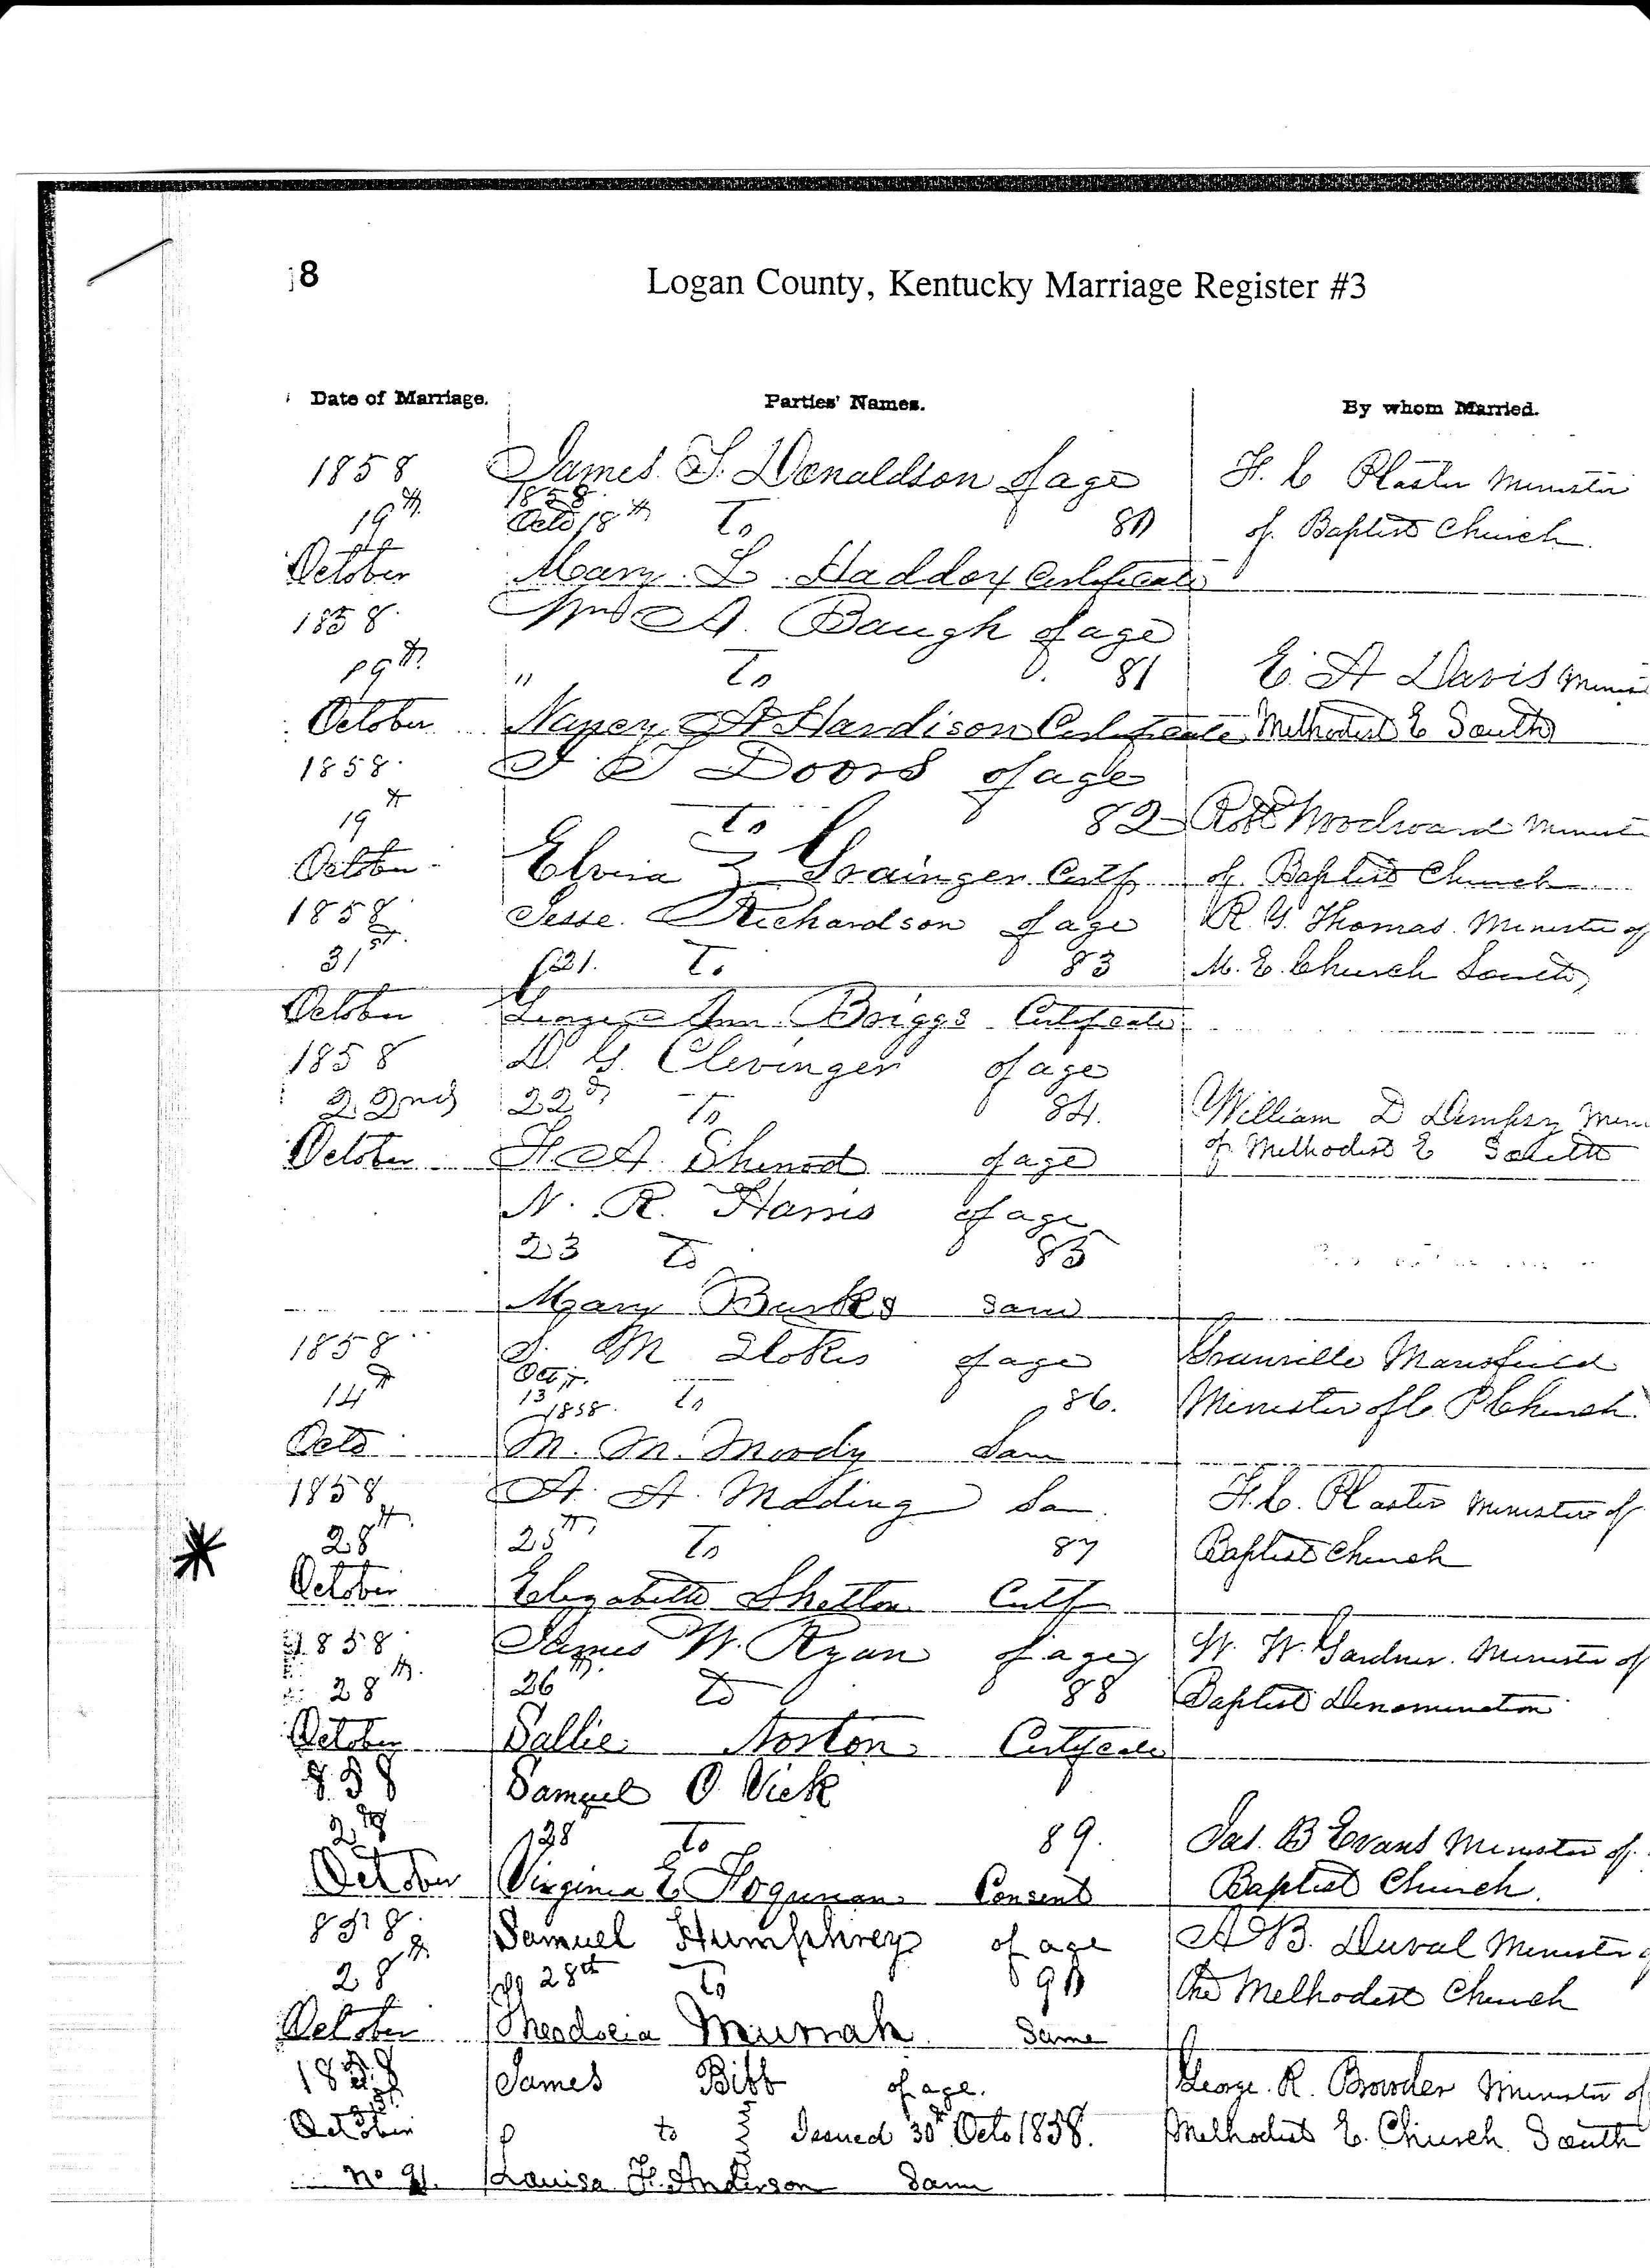 8
Logan County, Kentucky Marriage Register #3
Date of Marriage. Parties' Names. By whom Married.
1858 James S. Donaldson of age F. C Plaster Minister
19th 1858 Octo 18th To 80 of Baptist Church
October Mary L. Haddox Certificate
1858 Wm A. Baugh of age
19th " To 81 E. A Davis
October Nancy A Hardison Certificate Methodist E South
1858 Doors of age
19th To 82 Robt Woodward
October Elvira Z Grainger Certf of Baptist Church
1858 Jesse Richardson of age R. Y. Thomas Minister of
31st 21. To 83 M. E. Church South
October Ann Briggs Certificate
1858 D. G. Clevinger of age
22nd 22d To 84. William D Dempsy
October of age of Methodist E South
N. R. Harris of age
23 To 85
Mary Burks Same
1858 S. M Stokes of age Granville Mansfield
14th Oct 13 1858. To 86. Minister of C. P Church
Octo M. M. Moody Sam
1858 A. A. Molding Sa F. C. Plaster Minister of
28th 25th To 87 Baptist Church
October Elizabeth Shelton Certf
1858 James W. Ryan of age W. W. Gardner Minister of
28th 26th To 88 Baptist Denomination
October Sallie Norton Certificate
858 Samuel O Vick
28 28 To 89. Jas. B Evans Minister of
October Virginia E Consent Baptist Church.
858 Samuel Humphrey of age A B. Duval Minister
28th 28th To 90 the Methodist Church
October Theodocia Murrah Same
1858 James Bibb of age. George R. Browder Minister of
October to Issued 30th Octo 1858. Methodist E. Church South
No 91. Louisa F. Anderson Same